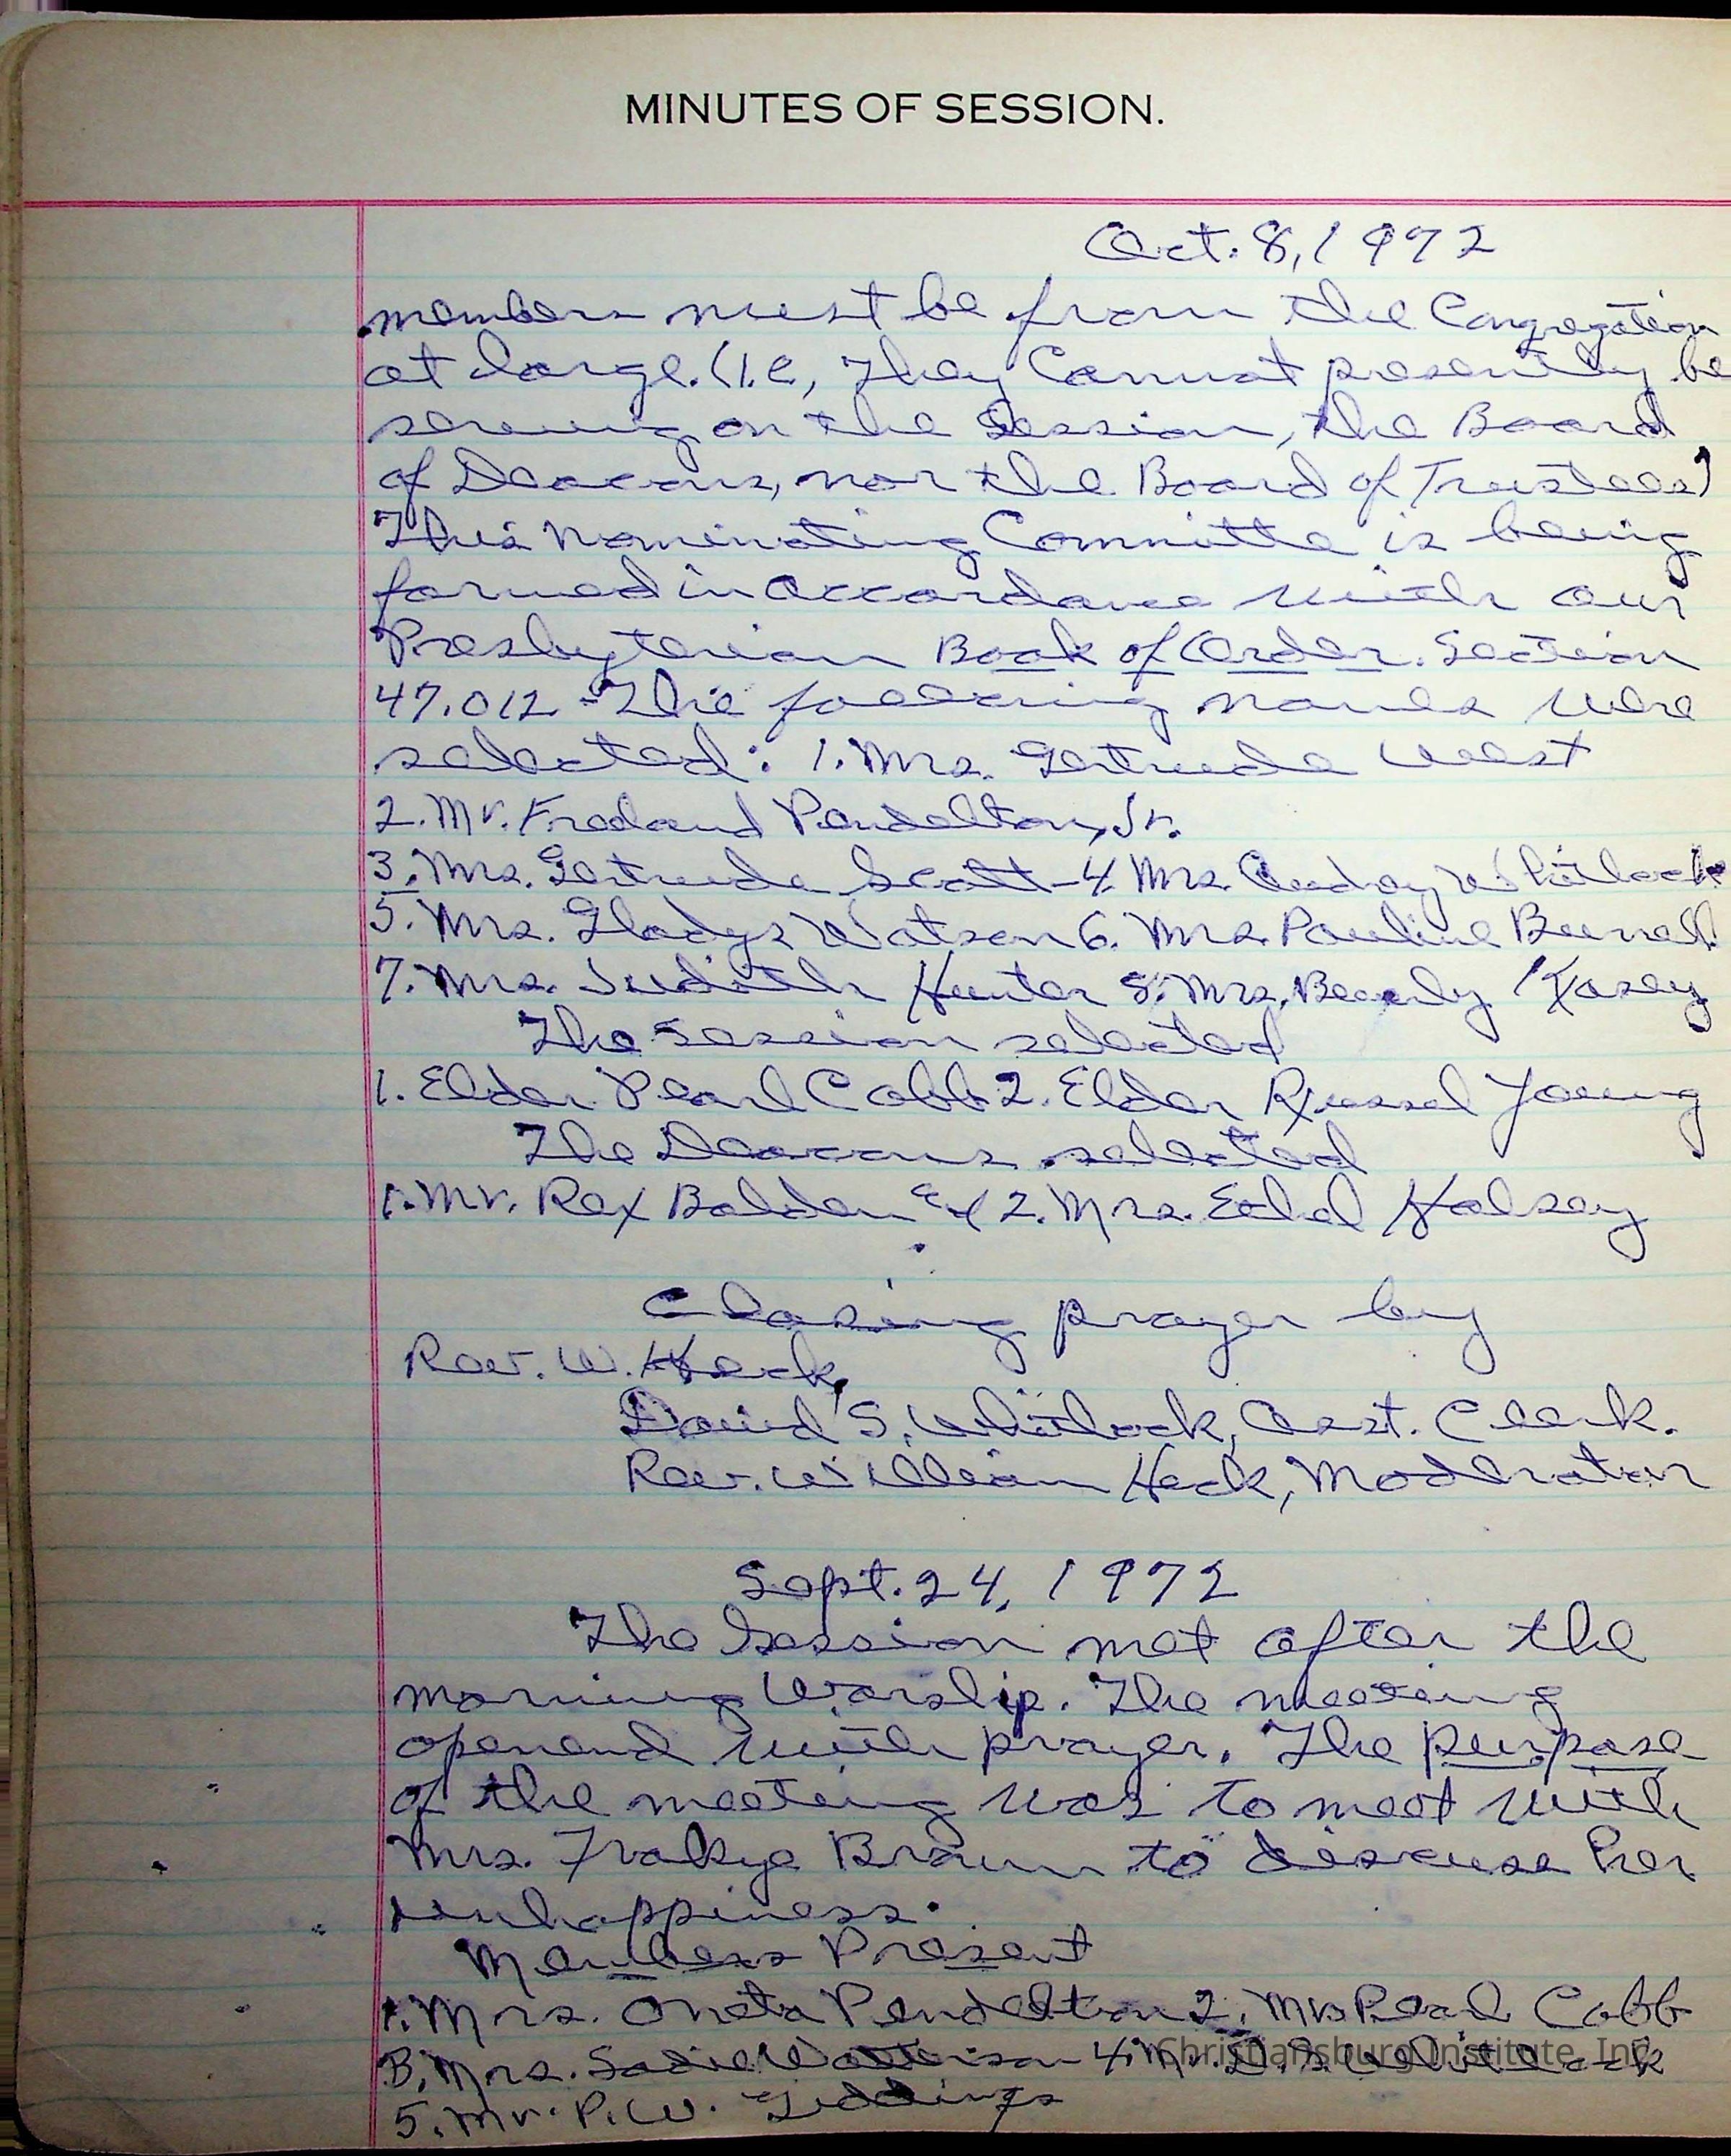 MINUTES OF SESSION.
Oct. 8, 1972
members must be from the Congregation
at large. (I.e, They Cannot presently be
serving on the Session, the Board
of Deacons, nor the Board of Trustees)
This Nominating Committe is being
formed in accordance with our
Presbyterian Book of Order. Section
47.012 - The following names were
selected: 1. Mrs. Gertrude West
2. Mr. Fredand Pendelton, Jr.
3. Mrs. Gertrude Scott - 4. Mrs. Audray Whitlock
5. Mrs. Gladys Watson 6. Mrs. Pauline Burnell
7. Mrs. Judith Hunter 8. Mrs. Beverly Kasey
The Session selected
1. Elder Pearl Cobb 2. Elder Russel Young
The Deacons selected
1. Mr. Rex Balden 2. Mrs. Ethel Halsey
Closing prayer by
Rev. W. Heck,
David S. Whitlock, Asst. Clerk.
Rev. William Heck, Moderator
Sept. 24, 1972
The Session met after the
morning Worship. The meeting
openend with prayer. The purpose
of the meeting was to meet with
Mrs. Brown to discuss her
unhappiness.
Members Present
1. Mrs. Oneta Pendelton 2. Mrs Pearl Cobb
3. Mrs. Sadie 4. Mr. D. S. Whitlock
Christiansburg Institute, Inc.
5. Mr. P. W. Giddings